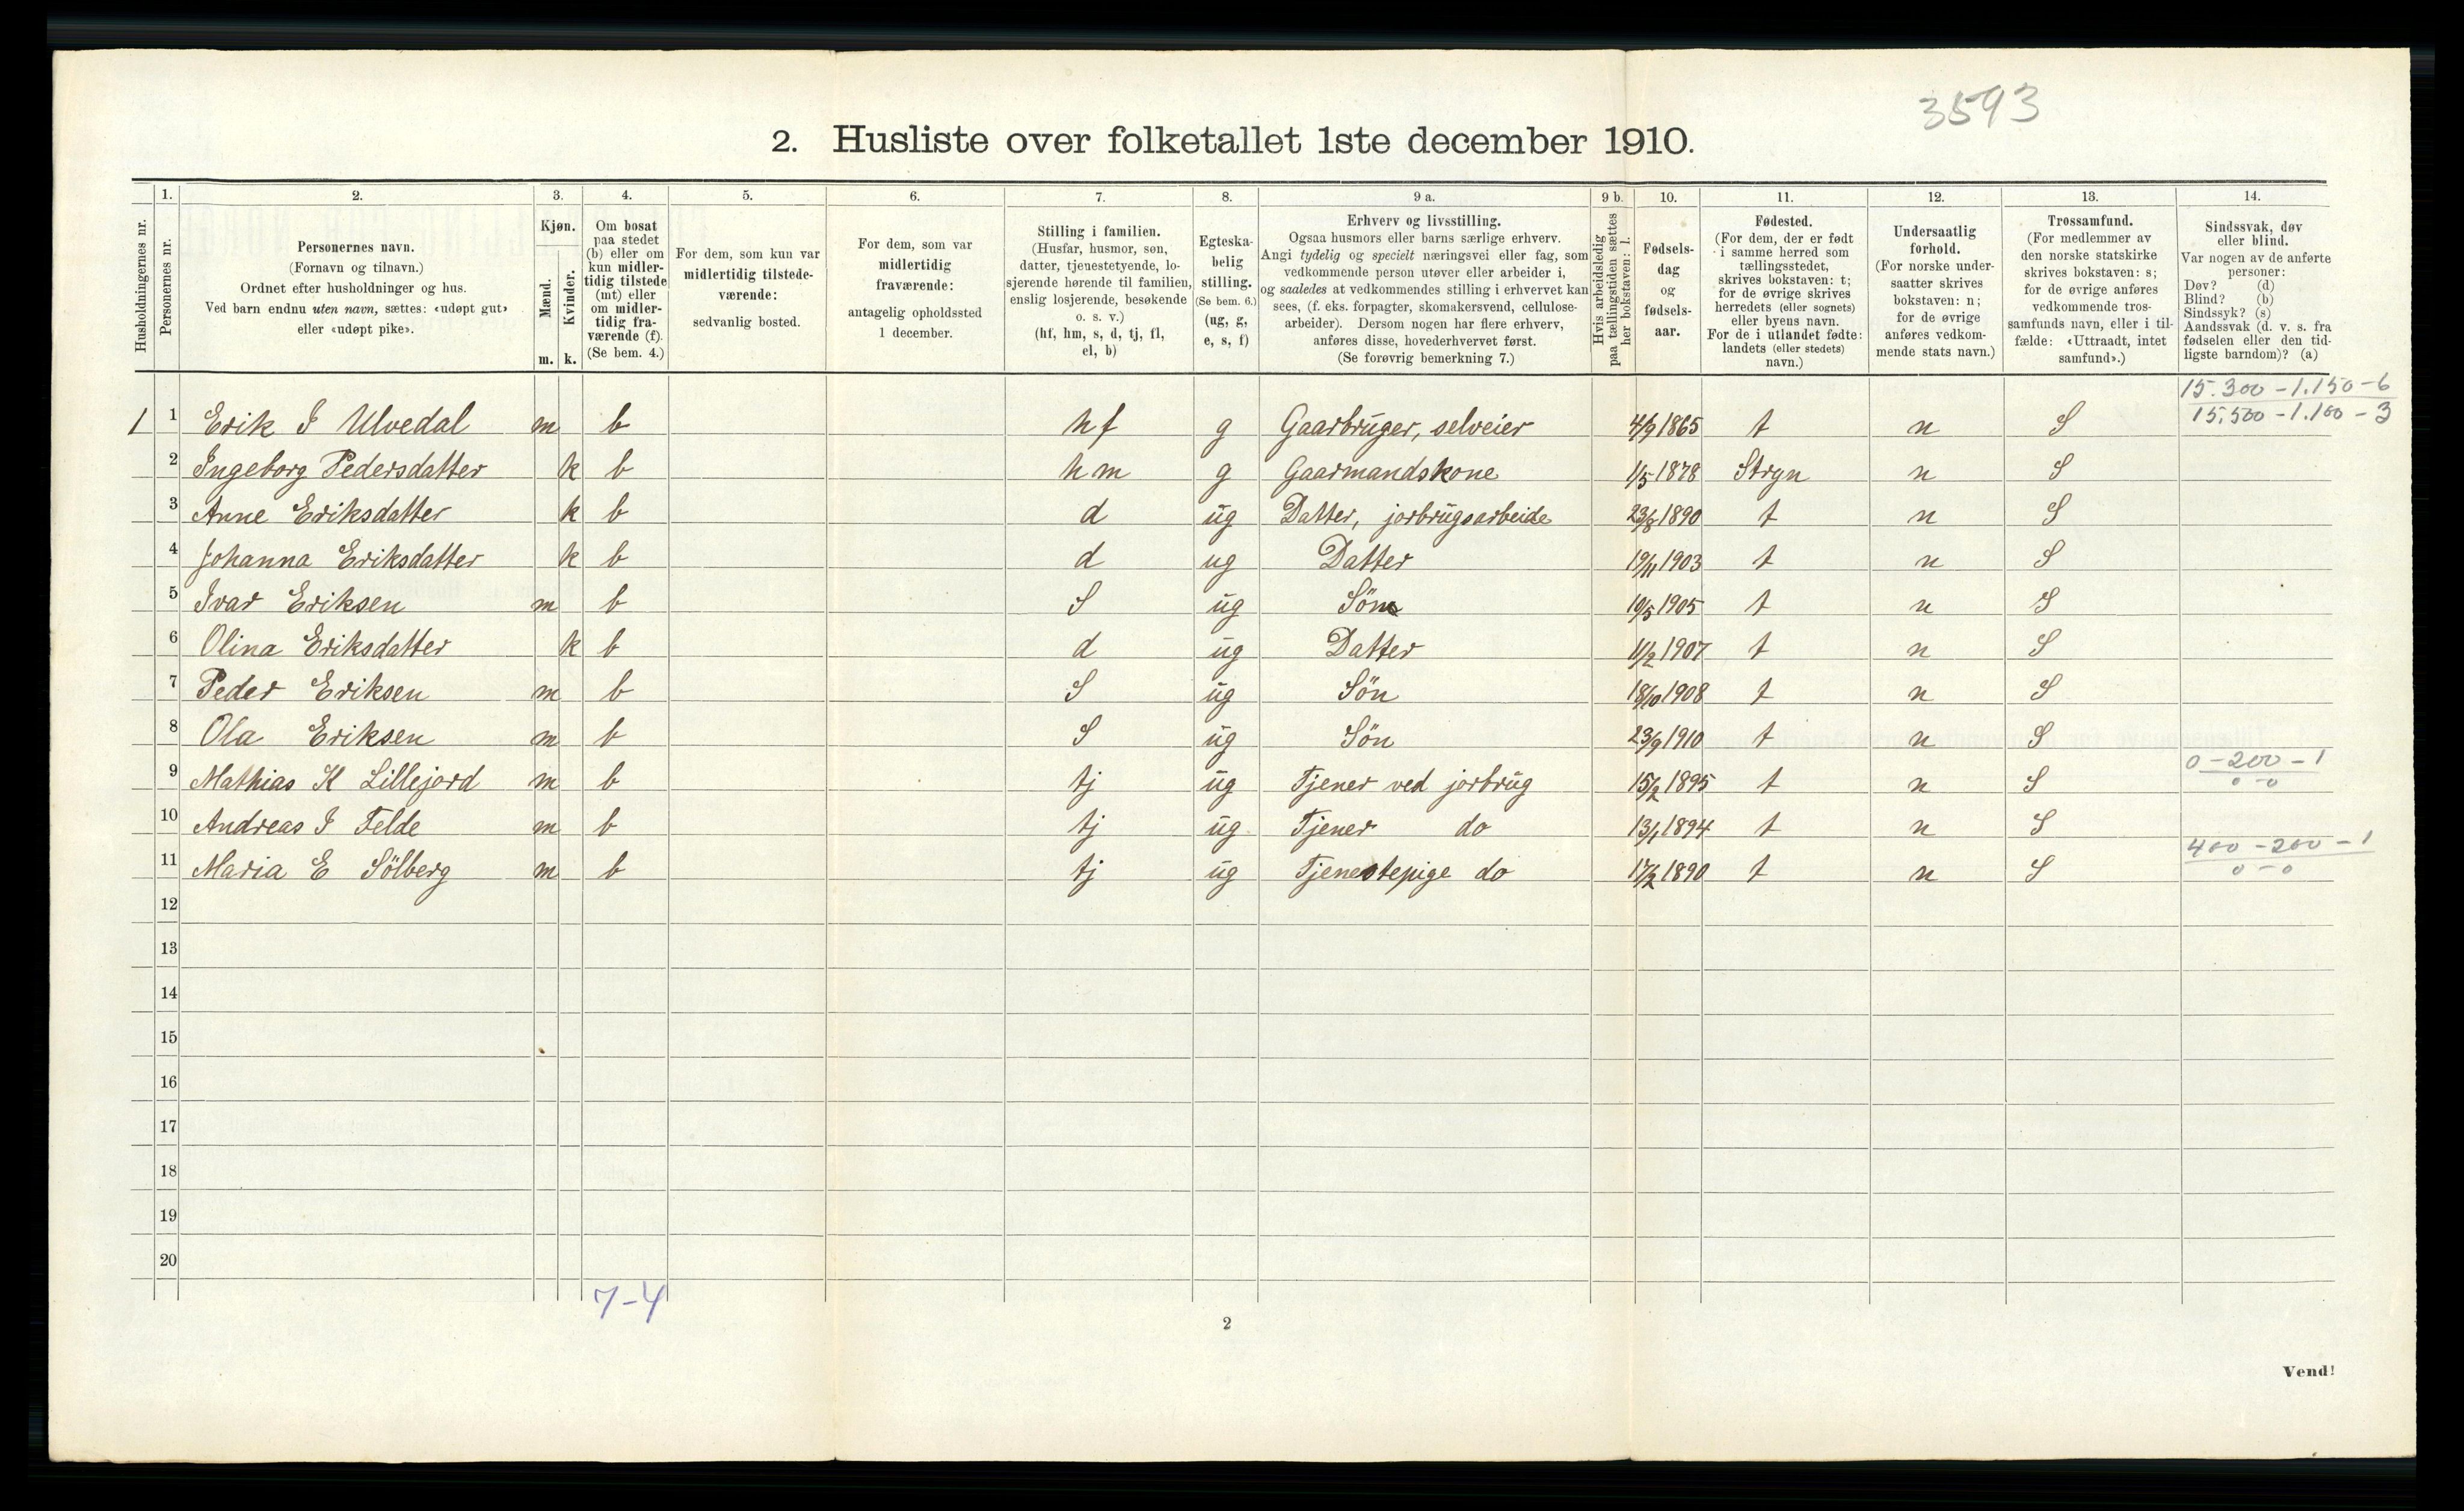 3593
2. Husliste over folketallet 1ste december 1910.
Husholdningernes nr.
1.
Personernes nr.
2.
Personernes navn.
(Fornavn og tilnavn.)
Ordnet efter husholdninger og hus.
Ved barn endnu uten navn, sættes: «udøpt gut»
eller «udøpt pike».
3.
Kjøn.
Mænd.
Kvinder.
m. k.
4.
Om bosat
paa stedet
(b) eller om
kun midler-
tidig tilstede
(mt) eller
om midler-
tidig fra-
værende (f).
(Se bem. 4.)
5.
For dem, som kun var
midlertidig tilstede-
værende:
sedvanlig bosted.
6.
For dem, som var
midlertidig
fraværende:
antagelig opholdssted
1 december.
7.
Stilling i familien.
(Husfar, husmor, søn,
datter, tjenestetyende, lo-
sjerende hørende til familien,
enslig losjerende, besøkende
o. s. v.)
(hf, hm, s, d, tj, fl,
el, b)
8.
Egteska-
belig
stilling.
(Se bem. 6.)
(ug, g,
e, s, f)
9 a.
Erhverv og livsstilling.
Ogsaa husmors eller barns særlige erhverv.
Angi tydelig og specielt næringsvei eller fag, som
vedkommende person utøver eller arbeider i,
og saaledes at vedkommendes stilling i erhvervet kan
sees, (f. eks. forpagter, skomakersvend, cellulose-
arbeider). Dersom nogen har flere erhverv,
anføres disse, hovederhvervet først.
(Se forøvrig bemerkning 7.)
9 b.
Hvis arbeidsledig
paa tællingstiden sættes
her bokstaven: l.
10.
Fødsels-
dag
og
fødsels-
aar.
11.
Fødested.
(For dem, der er født
i samme herred som
tællingsstedet,
skrives bokstaven: t;
for de øvrige skrives
herredets (eller sognets)
eller byens navn.
For de i utlandet fødte:
landets (eller stedets)
navn.)
12.
Undersaatlig
forhold.
(For norske under-
saatter skrives
bokstaven: n;
for de øvrige
anføres vedkom-
mende stats navn.)
13.
Trossamfund.
(For medlemmer av
den norske statskirke
skrives bokstaven: s;
for de øvrige anføres
vedkommende tros-
samfunds navn, eller i til-
fælde: «Uttraadt, intet
samfund».)
14.
Sindssvak, døv
eller blind.
Var nogen av de anførte
personer:
Døv? (d)
Blind? (b)
Sindssyk? (s)
Aandssvak (d. v. s. fra
fødselen eller den tid-
ligste barndom)? (a)
15.300 - 1.150 - 6
1 1 Erik I Ulvedal m b hf g Gaarbruger, selveier 4/9 1865 t n S 15.500 - 1.100 - 3
2 Ingeborg Pedersdatter k b hm g Gaarmandskone 1/5 1878 Stryn n S
3 Anne Eriksdatter k b d ug Datter, jorbrugsarbeide 23/8 1890 t n S
4 Johanna Eriksdatter k b d ug Datter 19/11 1903 t n S
5 Ivar Eriksen m b S ug Sön 10/5 1905 t n S
6 Olina Eriksdatter k b d ug Datter 11/2 1907 t n S
7 Peder Eriksen m b S ug Sön 18/10 1908 t n S
8 Ola Eriksen m b S ug Sön 23/9 1910 t n S
0 - 200 - 1
9 Mathias K Lillejord m b tj ug Tjener ved jorbrug 15/2 1895 t n S 0 - 0
10 Andreas I Felde m b tj ug Tjener do 13/1 1894 t n S
400 - 200 - 1
11 Maria E Sölberg m b tj ug Tjenestepige do 17/2 1890 t n S 0 - 0
12
13
14
15
16
17
18
19
20
7-4
2
Vend!